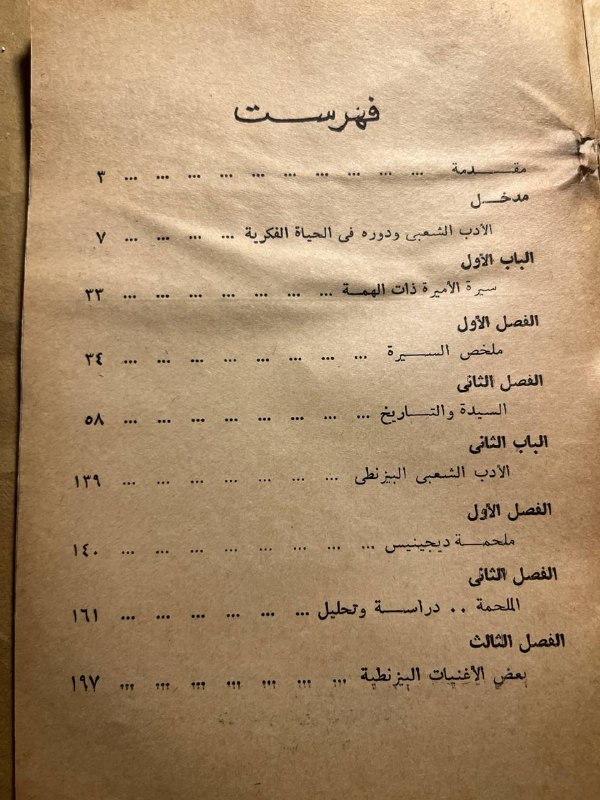 فهرست
مقـــدمة ... ... ... ... ... ... ... ... ... ... ٣
مدخـــل
الأدب الشعبى ودوره فى الحياة الفكرية ... ... ... ... ٧
الباب الأول
سيرة الأميرة ذات الهمـــة ... ... ... ... ... ... ... ٣٣
الفصل الأول
ملخص الســـيرة ... ... ... ... ... ... ... ... ٣٤
الفصل الثانى
السيدة والتـــاريخ ... ... ... ... ... ... ... ... ٥٨
الباب الثانى
الأدب الشعبى البيزنطى ... ... ... ... ... ... ... ١٣٩
الفصل الأول
ملحمـــة ديجينيس ... ... ... ... ... ... ... ... ١٤٠
الفصل الثانى
الملحمة .. دراســـة وتحليل ... ... ... ... ... ... ١٦١
الفصل الثالث
بعض الأغنيات البيزنطية ... ... ... ... ... ... ... ١٩٧